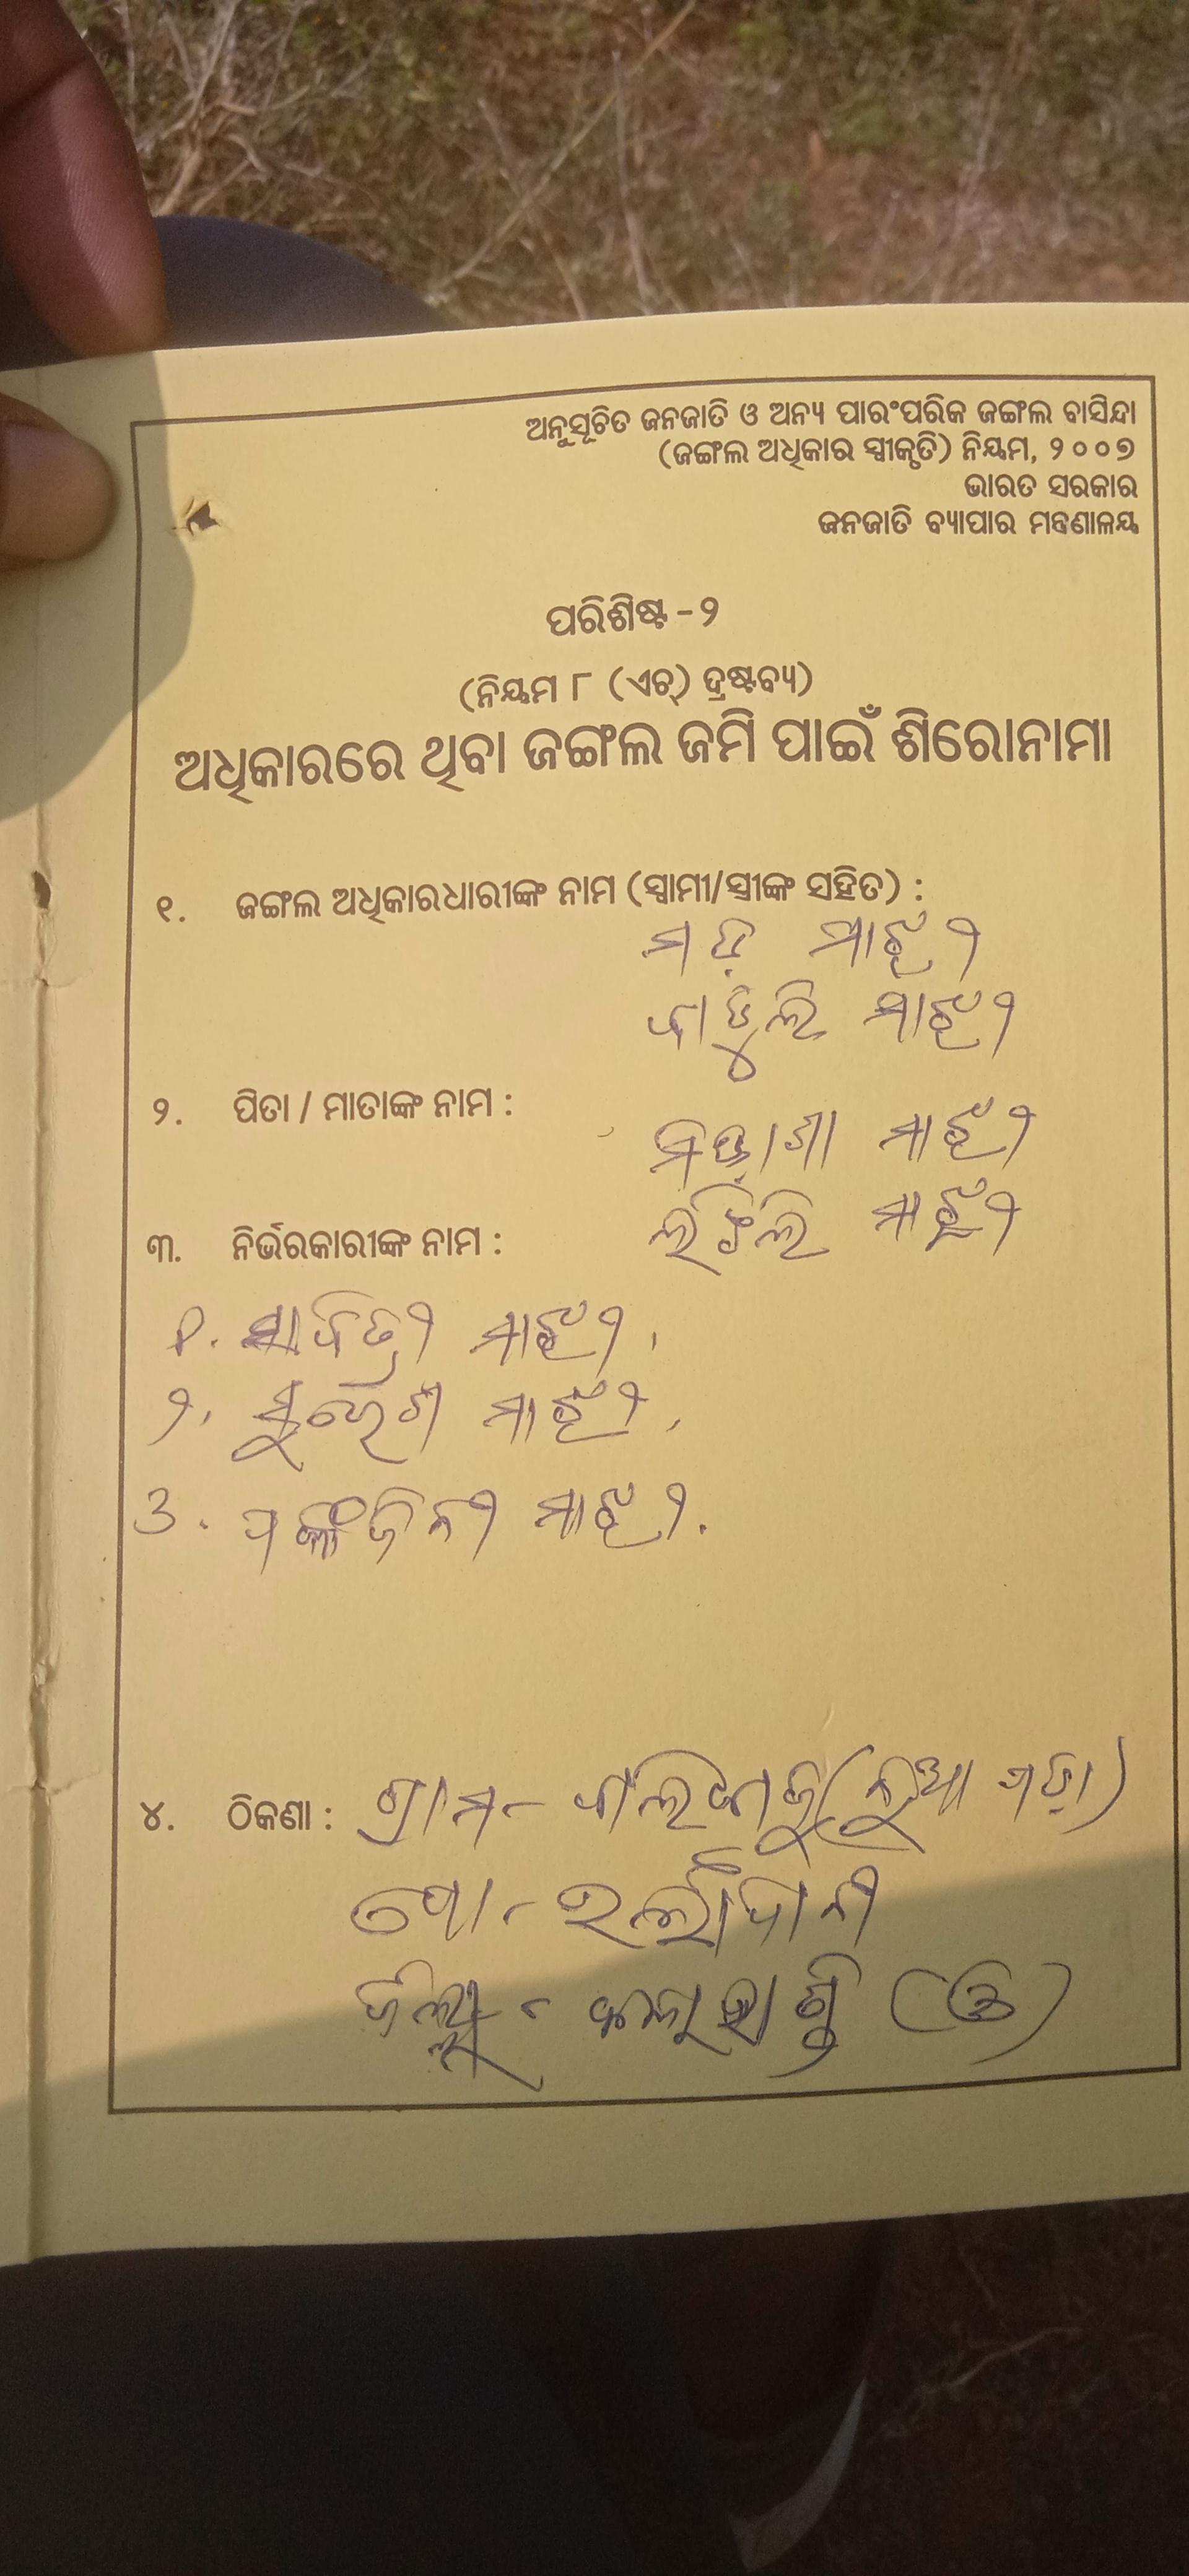 ଅନୁସୂଚିତ ଜନଜାତି ଓ ଅନ୍ୟ ପାରଂପରିକ ଜଙ୍ଗଲ ବାସିନ୍ଦା
(ଜଙ୍ଗଲ ଅଧିକାର ସ୍ୱୀକୃତି) ନିୟମ, ୨୦୦୭
ଭାରତ ସରକାର
ଜନଜାତି ବ୍ୟାପାର ମନ୍ତ୍ରଣାଳୟ
ପରିଶିଷ୍ଟ -୨
(ନିୟମ ୮ (ଏଚ୍) ଦ୍ରଷ୍ଟବ୍ୟ)
ଅଧିକାରରେ ଥିବା ଜଙ୍ଗଲ ଜମି ପାଇଁ ଶିରୋନାମା
୧. ଜଙ୍ଗଲ ଅଧିକାରଧାରୀଙ୍କ ନାମ (ସ୍ୱାମୀ/ସ୍ତ୍ରୀଙ୍କ ସହିତ) :
ମାଝୀ
ମାଝୀ
୨. ପିତା / ମାତାଙ୍କ ନାମ :
ମାଝୀ
ମାଝୀ
୩. ନିର୍ଭରକାରୀଙ୍କ ନାମ :
୧. ସାବିତ୍ରୀ ମାଝୀ
୨. ମାଝୀ
3. ପଙ୍କଜିନୀ ମାଝୀ.
୪. ଠିକଣା : ଗ୍ରାମ- (ନୂଆ ପଡ଼ା)
ପୋ-
ଜିଲ୍ଲା - କଳାହାଣ୍ଡି (ଓ)